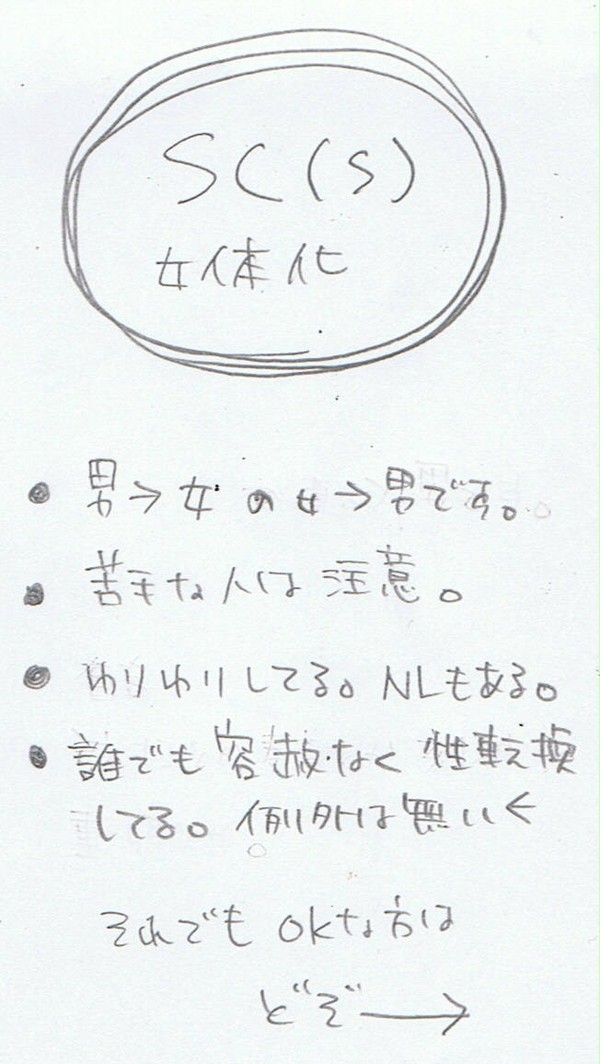 SC(s)
女体化
• 男→女の女→男です。
• 苦手な人は注意。
• ゆりゆりしてる。NLもある。
• 誰でも容赦なく性転換
してる。例外は無いく
それでもOKな方は
どぞ→